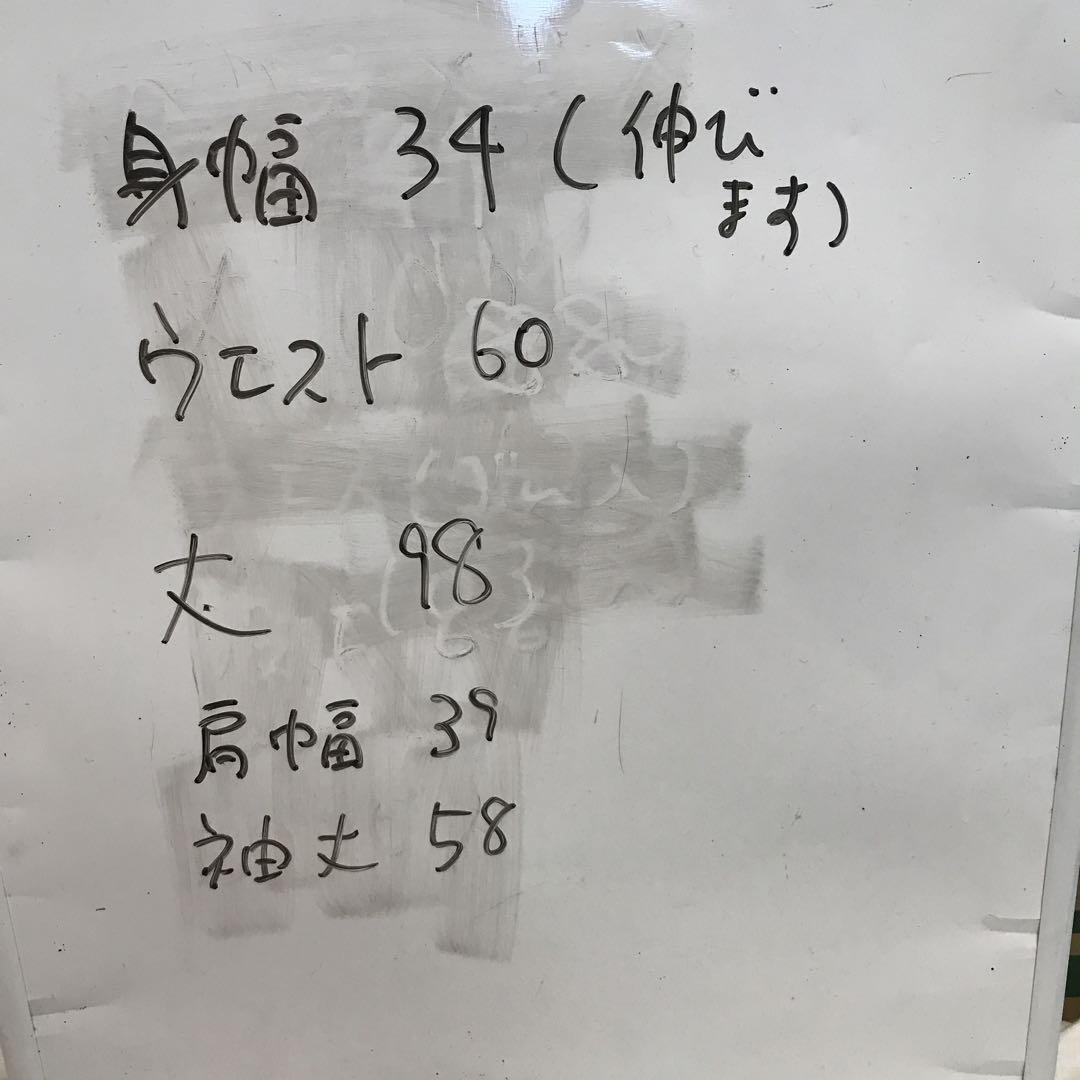 身幅 34 (伸び
ます)
ウエスト 60
丈 98
肩幅 39
袖丈 58